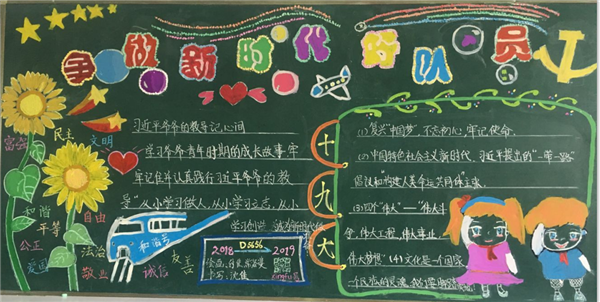 争做新时代好队员
富强
民主
文明
和谐
平等
公正
爱国
自由
法治
敬业
诚信
友善
和谐号
习近平爷爷的教导记心间
学习爷爷青年时期的成长故事牢
牢记住并认真践行习近平爷爷的教
导“从小学习做人,从小学立志,从小
学习创造
2018 2019
十九大
(1)复兴“中国梦”,不忘初心,牢记使命.
(2)中国特色社会主义新时代,习近平提出的“一带一路”
倡议和“构建人类命运共同体”主张.
(3)四个“伟大”——“伟大斗
争,伟大工程,伟大事业,
伟大梦想” (4)文化是一个国家